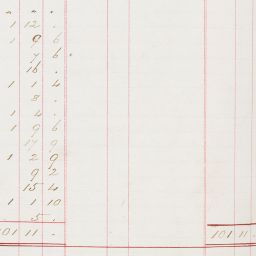 " " "
1 12 .
1 9 6
7 6
16 .
1 1 4
8 .
1 4 .
1 9 6
17 9
1 2 9
9 2
15 4
1 1 10
5 .
101 11 . 101 11 .